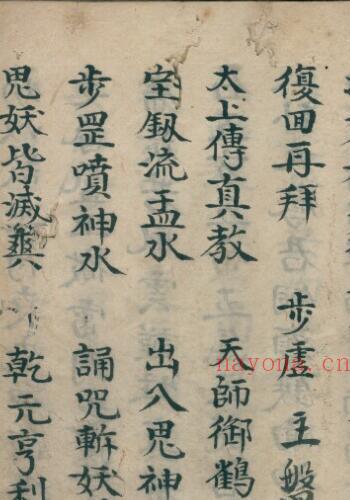 復回再拜 步虛 主盤
太上傳真教 天師御鶴
宝劔流盂水 出入鬼神
步罡噴神水 誦咒斬妖
鬼妖皆滅 乾元亨利
nayong.cn